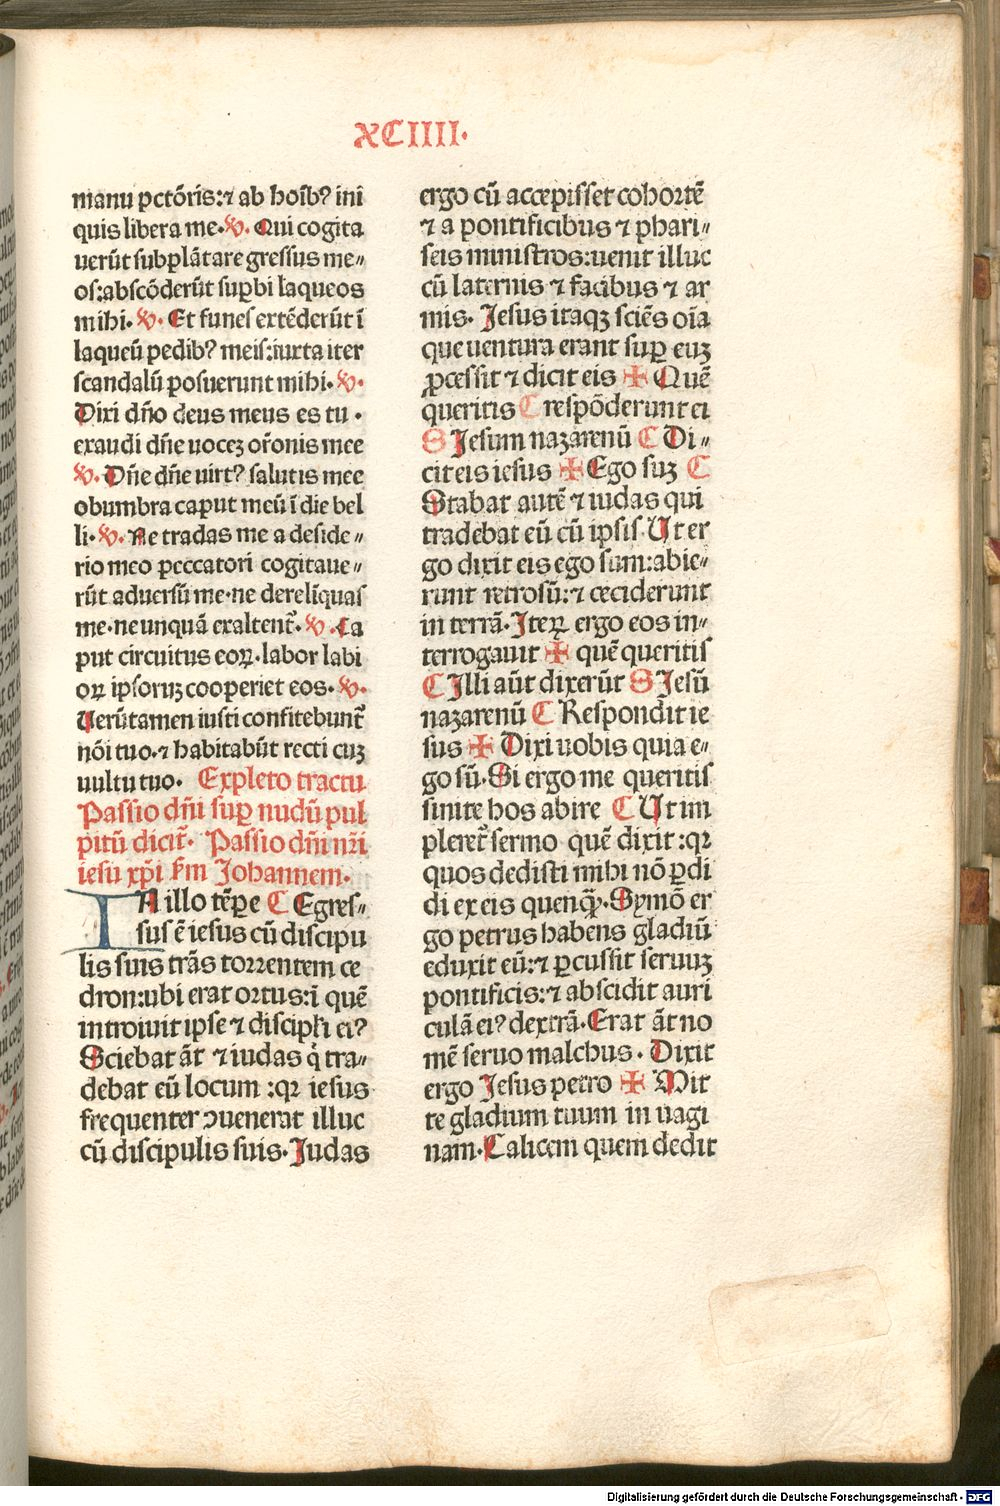 XCIIII.
manu pctōris:⁊ ab hoīb? ini
quis libera me.℣. Qui cogita
uerūt subplātare gressus me〃
os:abscōderūt suꝑbi laqueos
mihi.℣. Et funes extēderūt ī
laqueū pedib? meis:iuxta iter
scandalū posuerunt mihi.℣.
Dixi dño deus meus es tu .
exaudi dñe uocez or̄onis mee
℣. Dñe dñe uirt? salutis mee
obumbra caput meū ī die bel
li.℣. Ne tradas me a deside〃
rio meo peccatori cogitaue〃
rūt aduersū me.ne derelīquas
me.ne unquā exaltent᷑.℣. Ca
put circuitus eoꝝ.labor labi
oꝝ ipsoruz cooperiet eos.℣.
Uerūtamen iusti confitebunt᷑
nōi tuo.⁊ habitabūt recti cuz
uultu tuo. Expleto tractu
Passio dn̄i suꝑ nudū pul
pitū dicit᷑. Passio dn̄i nr̄i
iesu xp̄i ẜm Johannem.
IN illo tēꝑe C Egres〃
sus ē iesus cū discipu
lis suis trās torrentem ce
dron:ubi erat ortus:ī quē
introiuit ipse ⁊ discipłi ei?
Sciebat āt ⁊ iudas q̇ tra〃
debat eū locum :qꝛ iesus
frequenter ɔuenerat illuc
cū discipulis suis. Judas
ergo cū accepisset cohortē
⁊ a pontificibus ⁊ phari〃
seis ministros:uenit illuc
cū laternis ⁊ facibus ⁊ ar
mis. Jesus itaqꝫ sciēs oīa
que uentura erant suꝑ euz
ꝓcessit ⁊ dicit eis ✠ Quē
queritis C respōderunt ei
S Jesum nazarenū C Di〃
cit eis iesus ✠ Ego suz C
Stabat autē ⁊ iudas qui
tradebat eū cū ipsis. Ut er
go dixit eis ego sum:abie〃
runt retrosū:⁊ ceciderunt
in terrā. Iteꝝ ergo eos in〃
terrogauit ✠ quē queritis
C Illi aūt dixerūt S Jesū
nazarenū C Respondit ie
sus ✠ Dixi uobis quia e〃
go sū. Si ergo me queritis
sinite hos abire C Ut im
pleret᷑ sermo quē dixit :qꝛ
quos dedisti mihi nō ꝑdi
di ex eis quenqꝫ. Symō er
go petrus habens gladiū
eduxit eū:⁊ ꝑcussit seruuz
pontificis:⁊ abscidit auri
culā ei? dextrā. Erat āt no
mē seruo malchus. Dixit
ergo Jesus petro ✠ Mit
te gladium tuum in uagi
nam. Calicem quem dedit
Digitalisierung gefördert durch die Deutsche Forschungsgemeinschaft - DFG